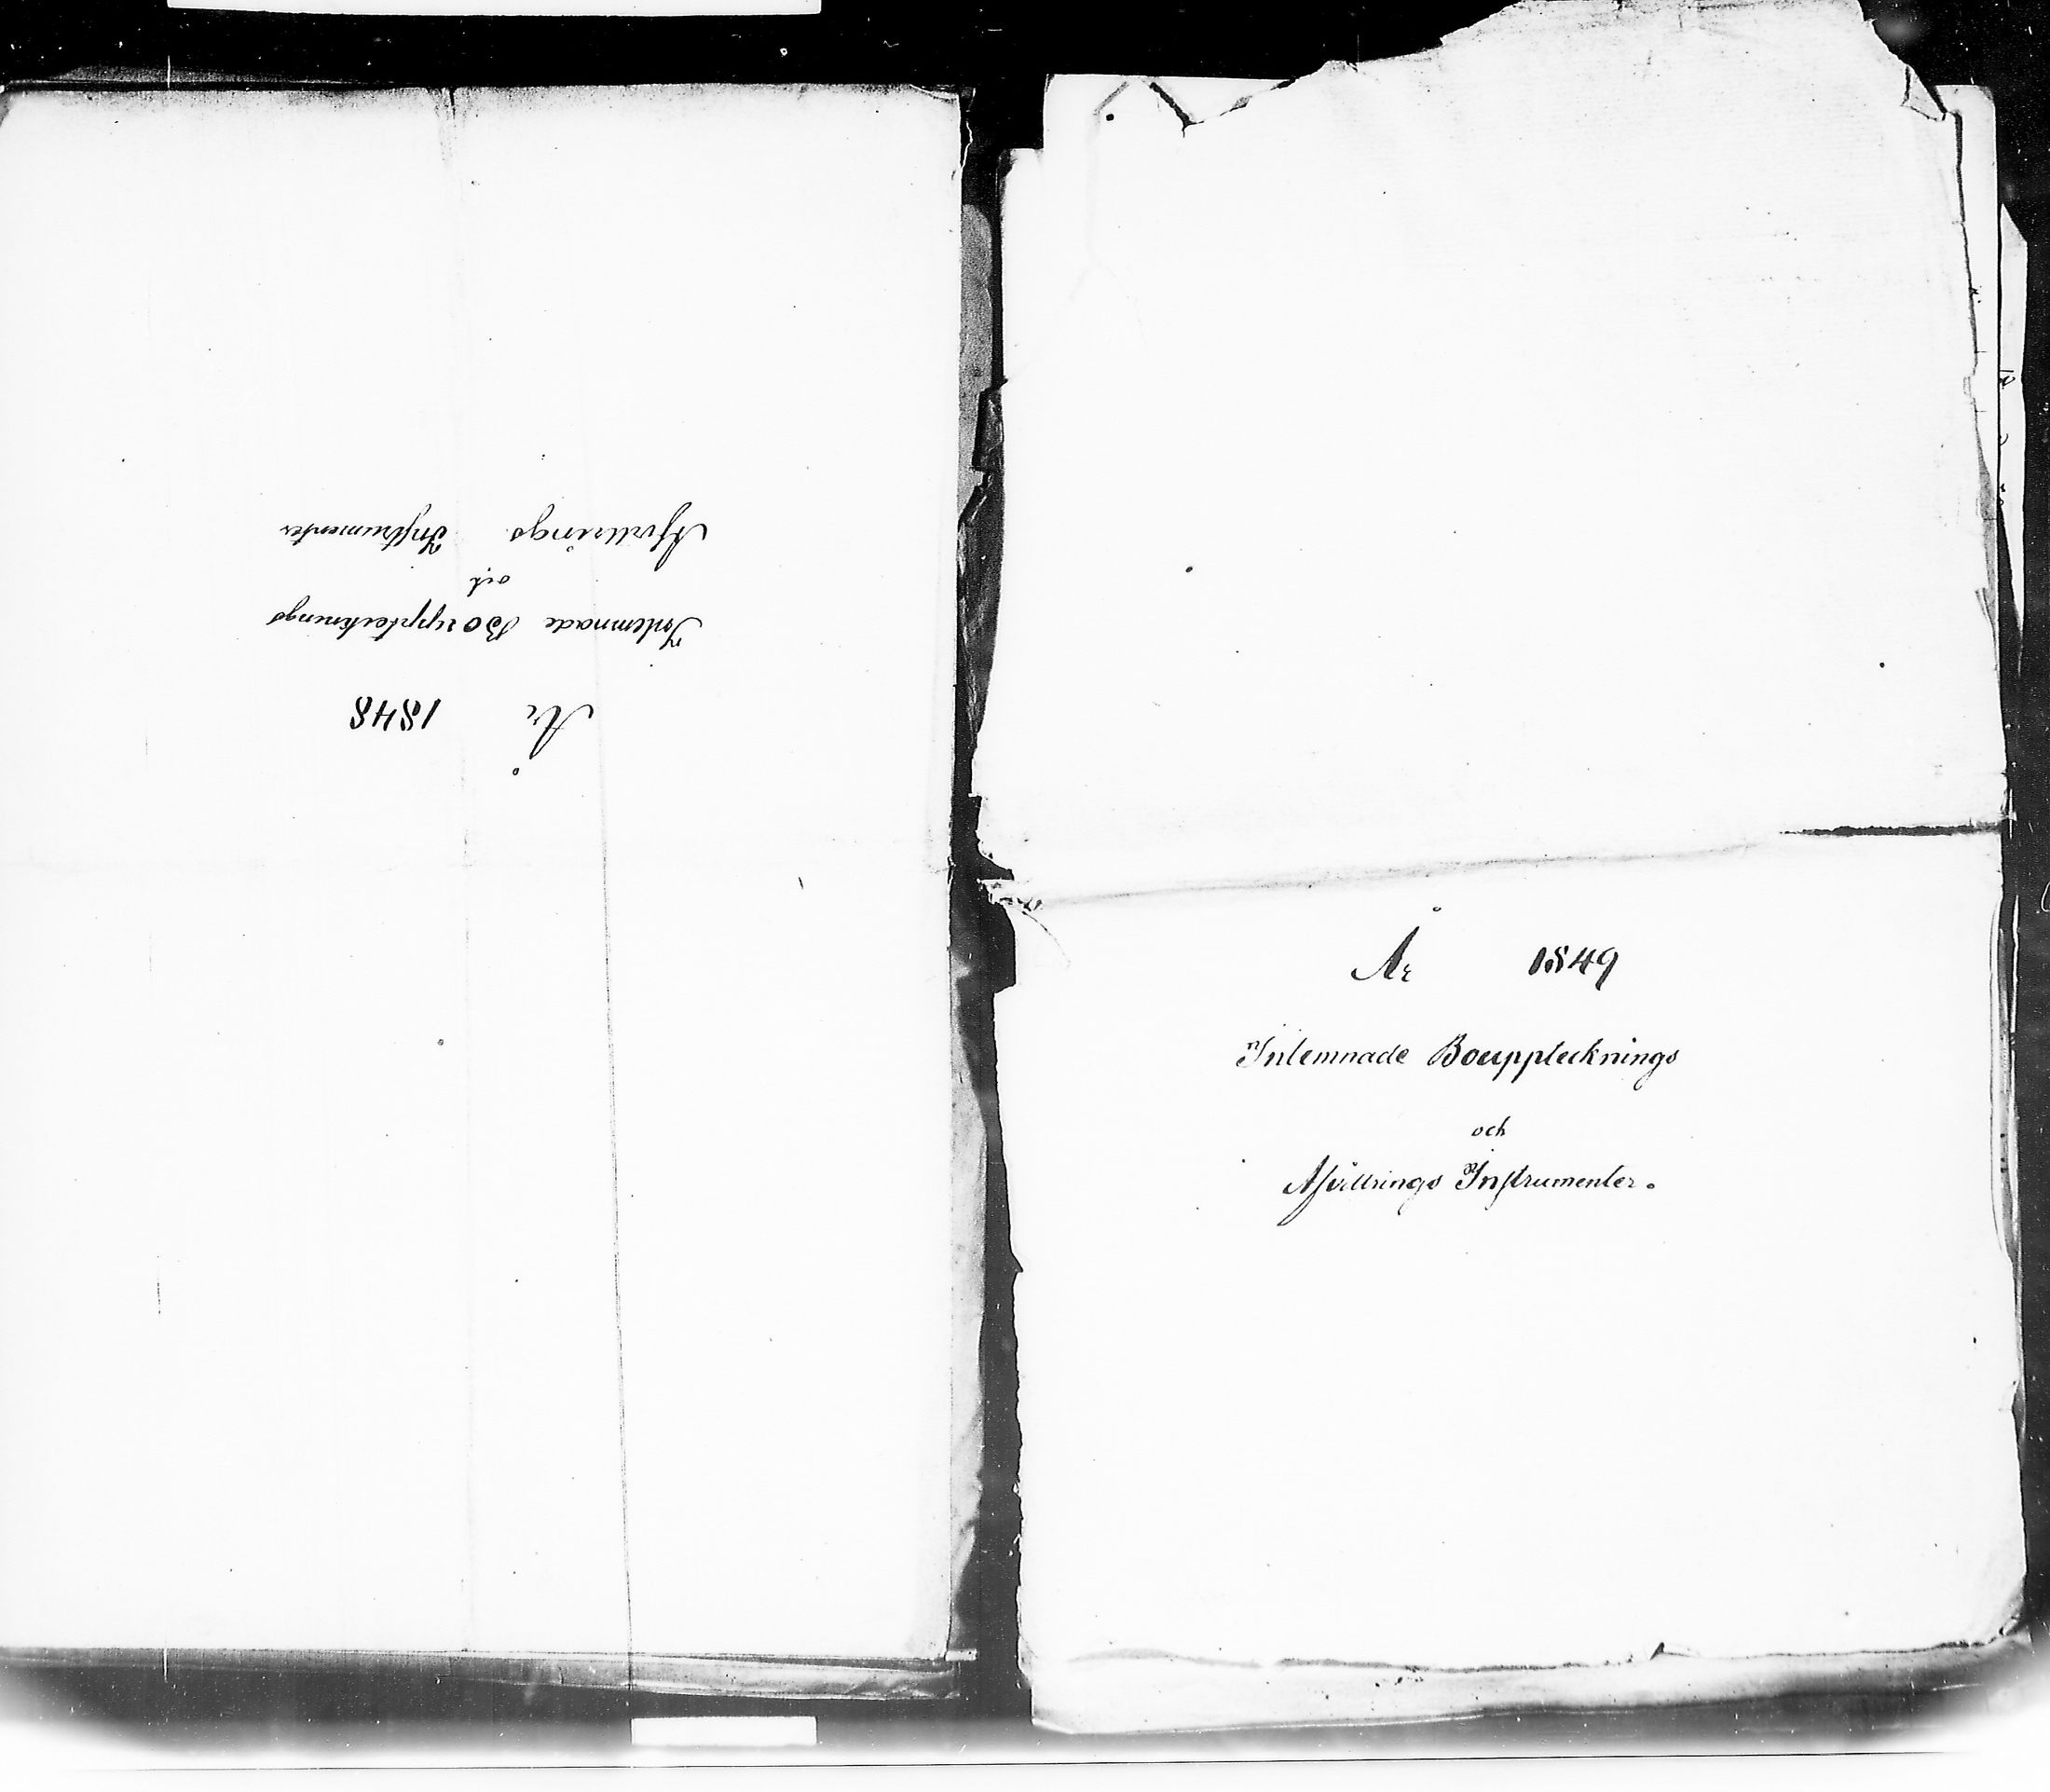 År 1848
Inlemnade Bouppteknings
och
Afvittrings Instrumenter
År 1849
Inlemnade Boupptecknings
och
Afvittrings Instrumenter.